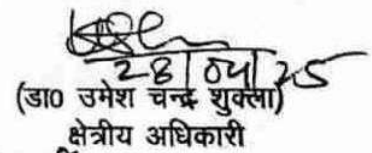 28/04/25
(डा0 उमेश चन्द्र शुक्ला)
क्षेत्रीय अधिकारी